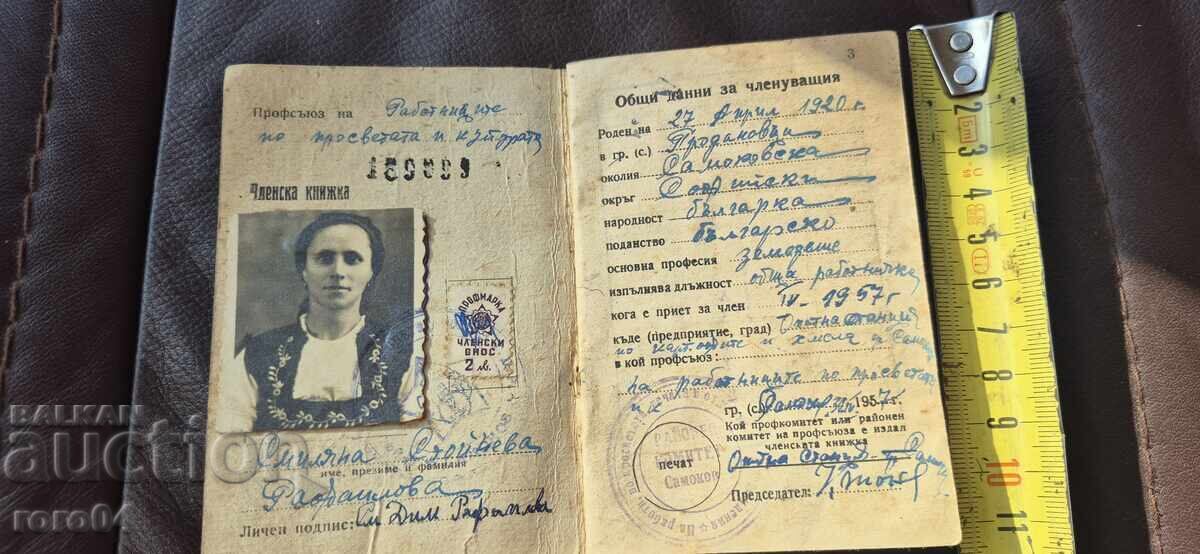 Профсъюз на Работниците
по просветата и културата
Членска книжка
ПРОФМАРКА
ЧЛЕНСКИ
ВНОС
2 лв.
Смиляна Стойчева
име, презиме и фамилия
Личен подпис:
3
Общи данни за членуващия
Роден на 27 Април 1920 г.
в гр. (с.) Продановци
околия Самоковска
окръг Софийски
народност българка
поданство българско
основна професия земеделие
изпълнява длъжност обща работничка
кога е приет за член IV - 1957 г
къде (предприятие, град) Опитна станция
по картофите и
в кой профсъюз:
на работниците по просветата
и к
гр. (с.) 1957 г.
Кой профкомитет или районен
комитет на профсъюза е издал
членската книжка
печат Опитна Станц.
Председател:
РАБОТ
КОМИТЕТ
Самоков
BALKAN
auction
roro04
2
3
4
5
6
7
8
9
10
11